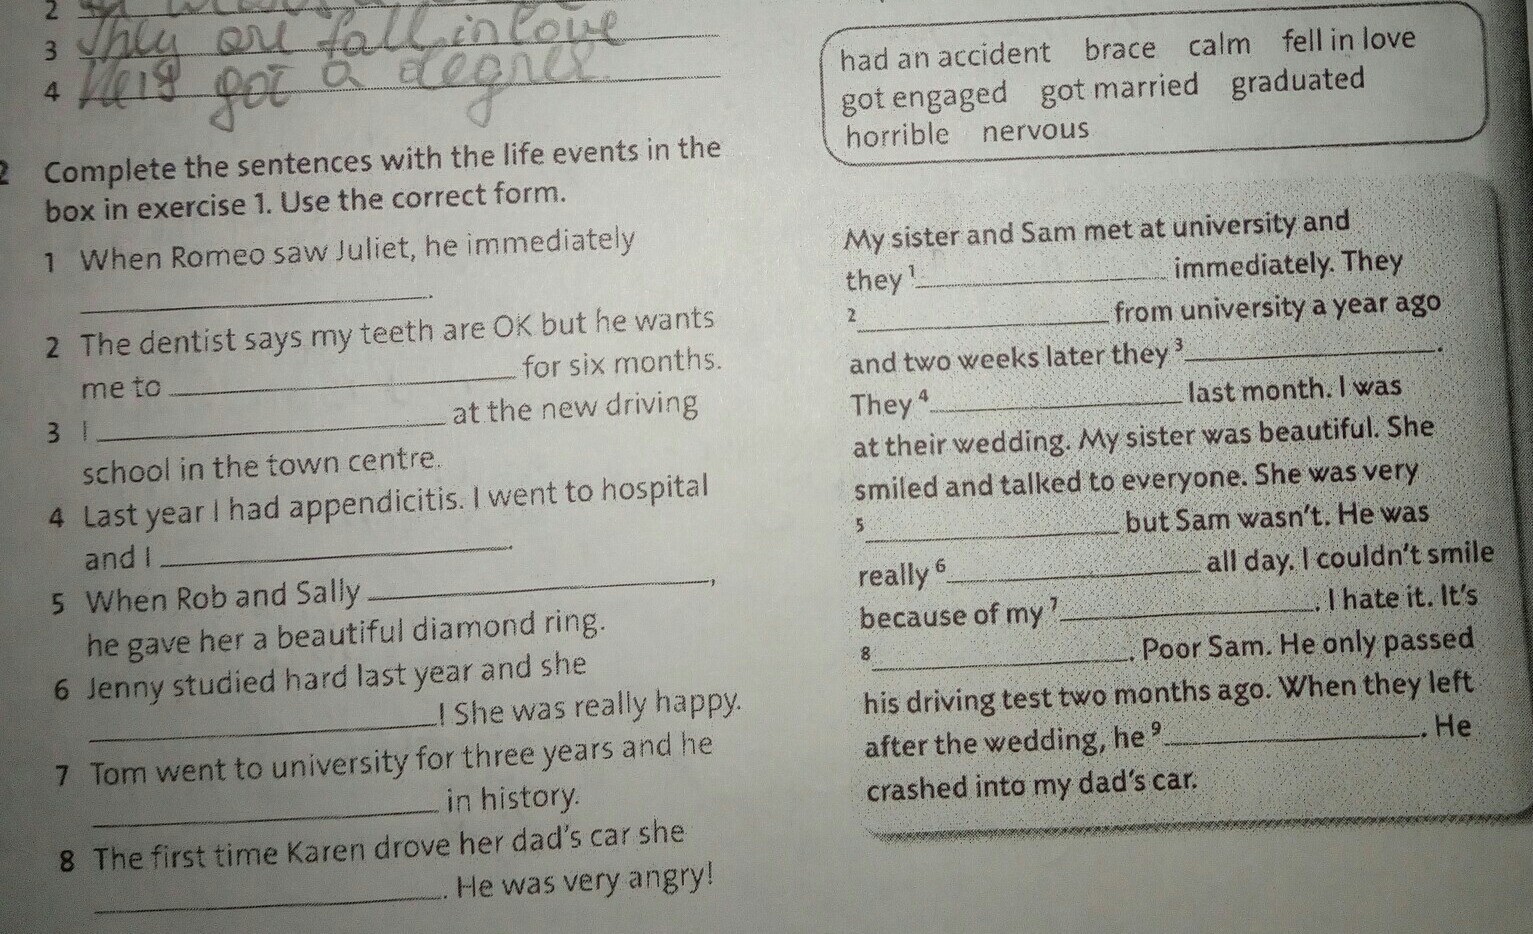 2
3 They are fall in love
4 He is got a degree.
2 Complete the sentences with the life events in the
box in exercise 1. Use the correct form.
1 When Romeo saw Juliet, he immediately
.
2 The dentist says my teeth are OK but he wants
me to for six months.
3 I at the new driving
school in the town centre.
4 Last year I had appendicitis. I went to hospital
and I .
5 When Rob and Sally ,
he gave her a beautiful diamond ring.
6 Jenny studied hard last year and she
! She was really happy.
7 Tom went to university for three years and he
in history.
8 The first time Karen drove her dad's car she
. He was very angry!
had an accident brace calm fell in love
got engaged got married graduated
horrible nervous
My sister and Sam met at university and
they 1 immediately. They
2 from university a year ago
and two weeks later they 3 .
They 4 last month. I was
at their wedding. My sister was beautiful. She
smiled and talked to everyone. She was very
5 but Sam wasn't. He was
really 6 all day. I couldn't smile
because of my 7 . I hate it. It's
8 . Poor Sam. He only passed
his driving test two months ago. When they left
after the wedding, he 9 . He
crashed into my dad's car.